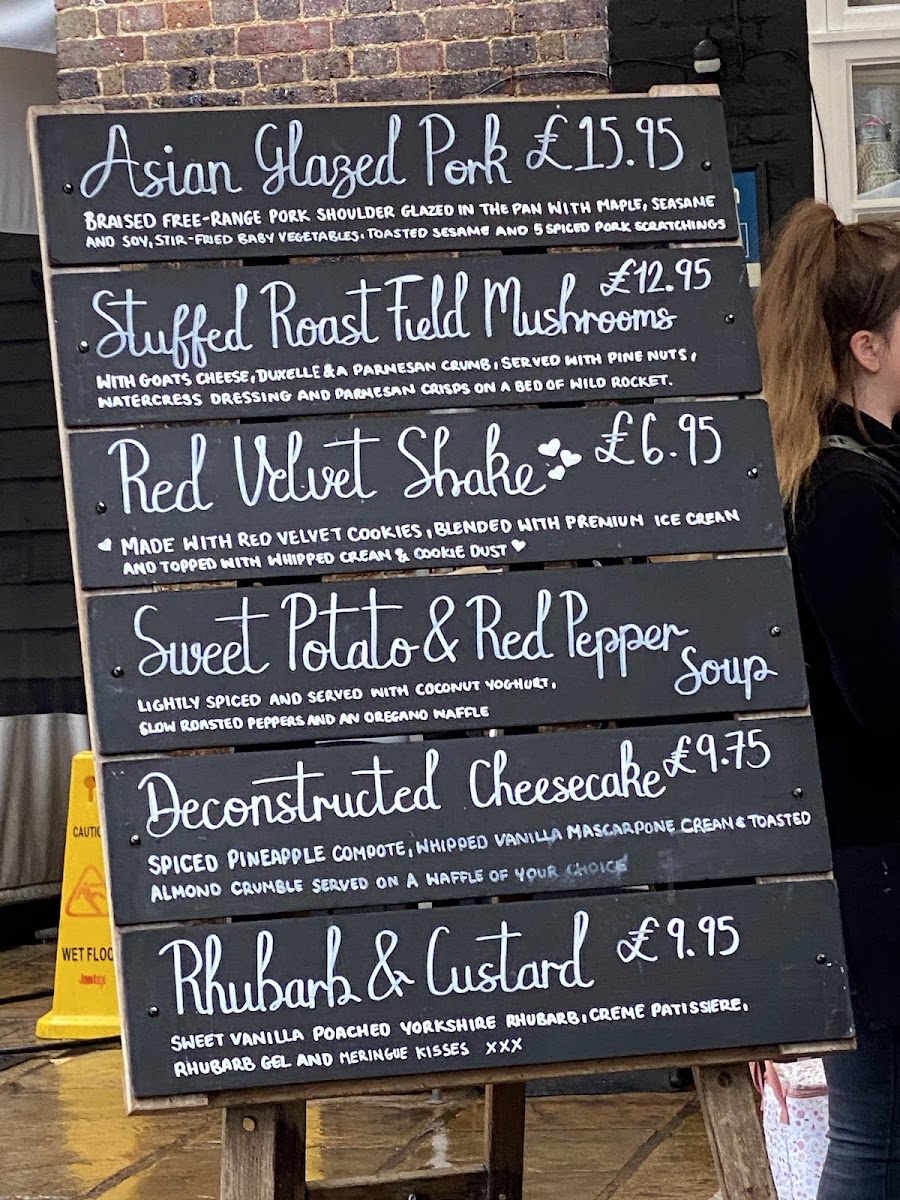 Asian Glazed Pork £15.95
BRAISED FREE-RANGE PORK SHOULDER GLAZED IN THE PAN WITH MAPLE, SEASANE
AND SOY, STIR-FRIED BABY VEGETABLES. TOASTED SESAME AND 5 SPICED PORK SCRATCHINGS
Stuffed Roast Field Mushrooms £12.95
WITH GOATS CHEESE, DUXELLE & A PARMESAN CRUMB, SERVED WITH PINE NUTS,
WATERCRESS DRESSING AND PARMESAN CRISPS ON A BED OF WILD ROCKET.
Red Velvet Shake £6.95
MADE WITH RED VELVET COOKIES, BLENDED WITH PREMIUN ICE CREAN
AND TOPPED WITH WHIPPED CREAN & COOKIE DUST
Sweet Potato & Red Pepper
Soup
LIGHTLY SPICED AND SERVED WITH COCONUT YOGHURT,
SLOW ROASTED PEPPERS AND AN OREGANO WAFFLE
Deconstructed Cheesecake £9.75
SPICED PINEAPPLE COMPOTE, WHIPPED VANILLA MASCARPONE CREAN & TOASTED
ALMOND CRUMBLE SERVED ON A WAFFLE OF YOUR CHOICE
Rhubarb & Custard £9.95
SWEET VANILLA POACHED YORKSHIRE RHUBARB, CREME PATISSIERE,
RHUBARB GEL AND MERINGUE KISSES XXX
CAUTIO
WET FLOO
Jantex